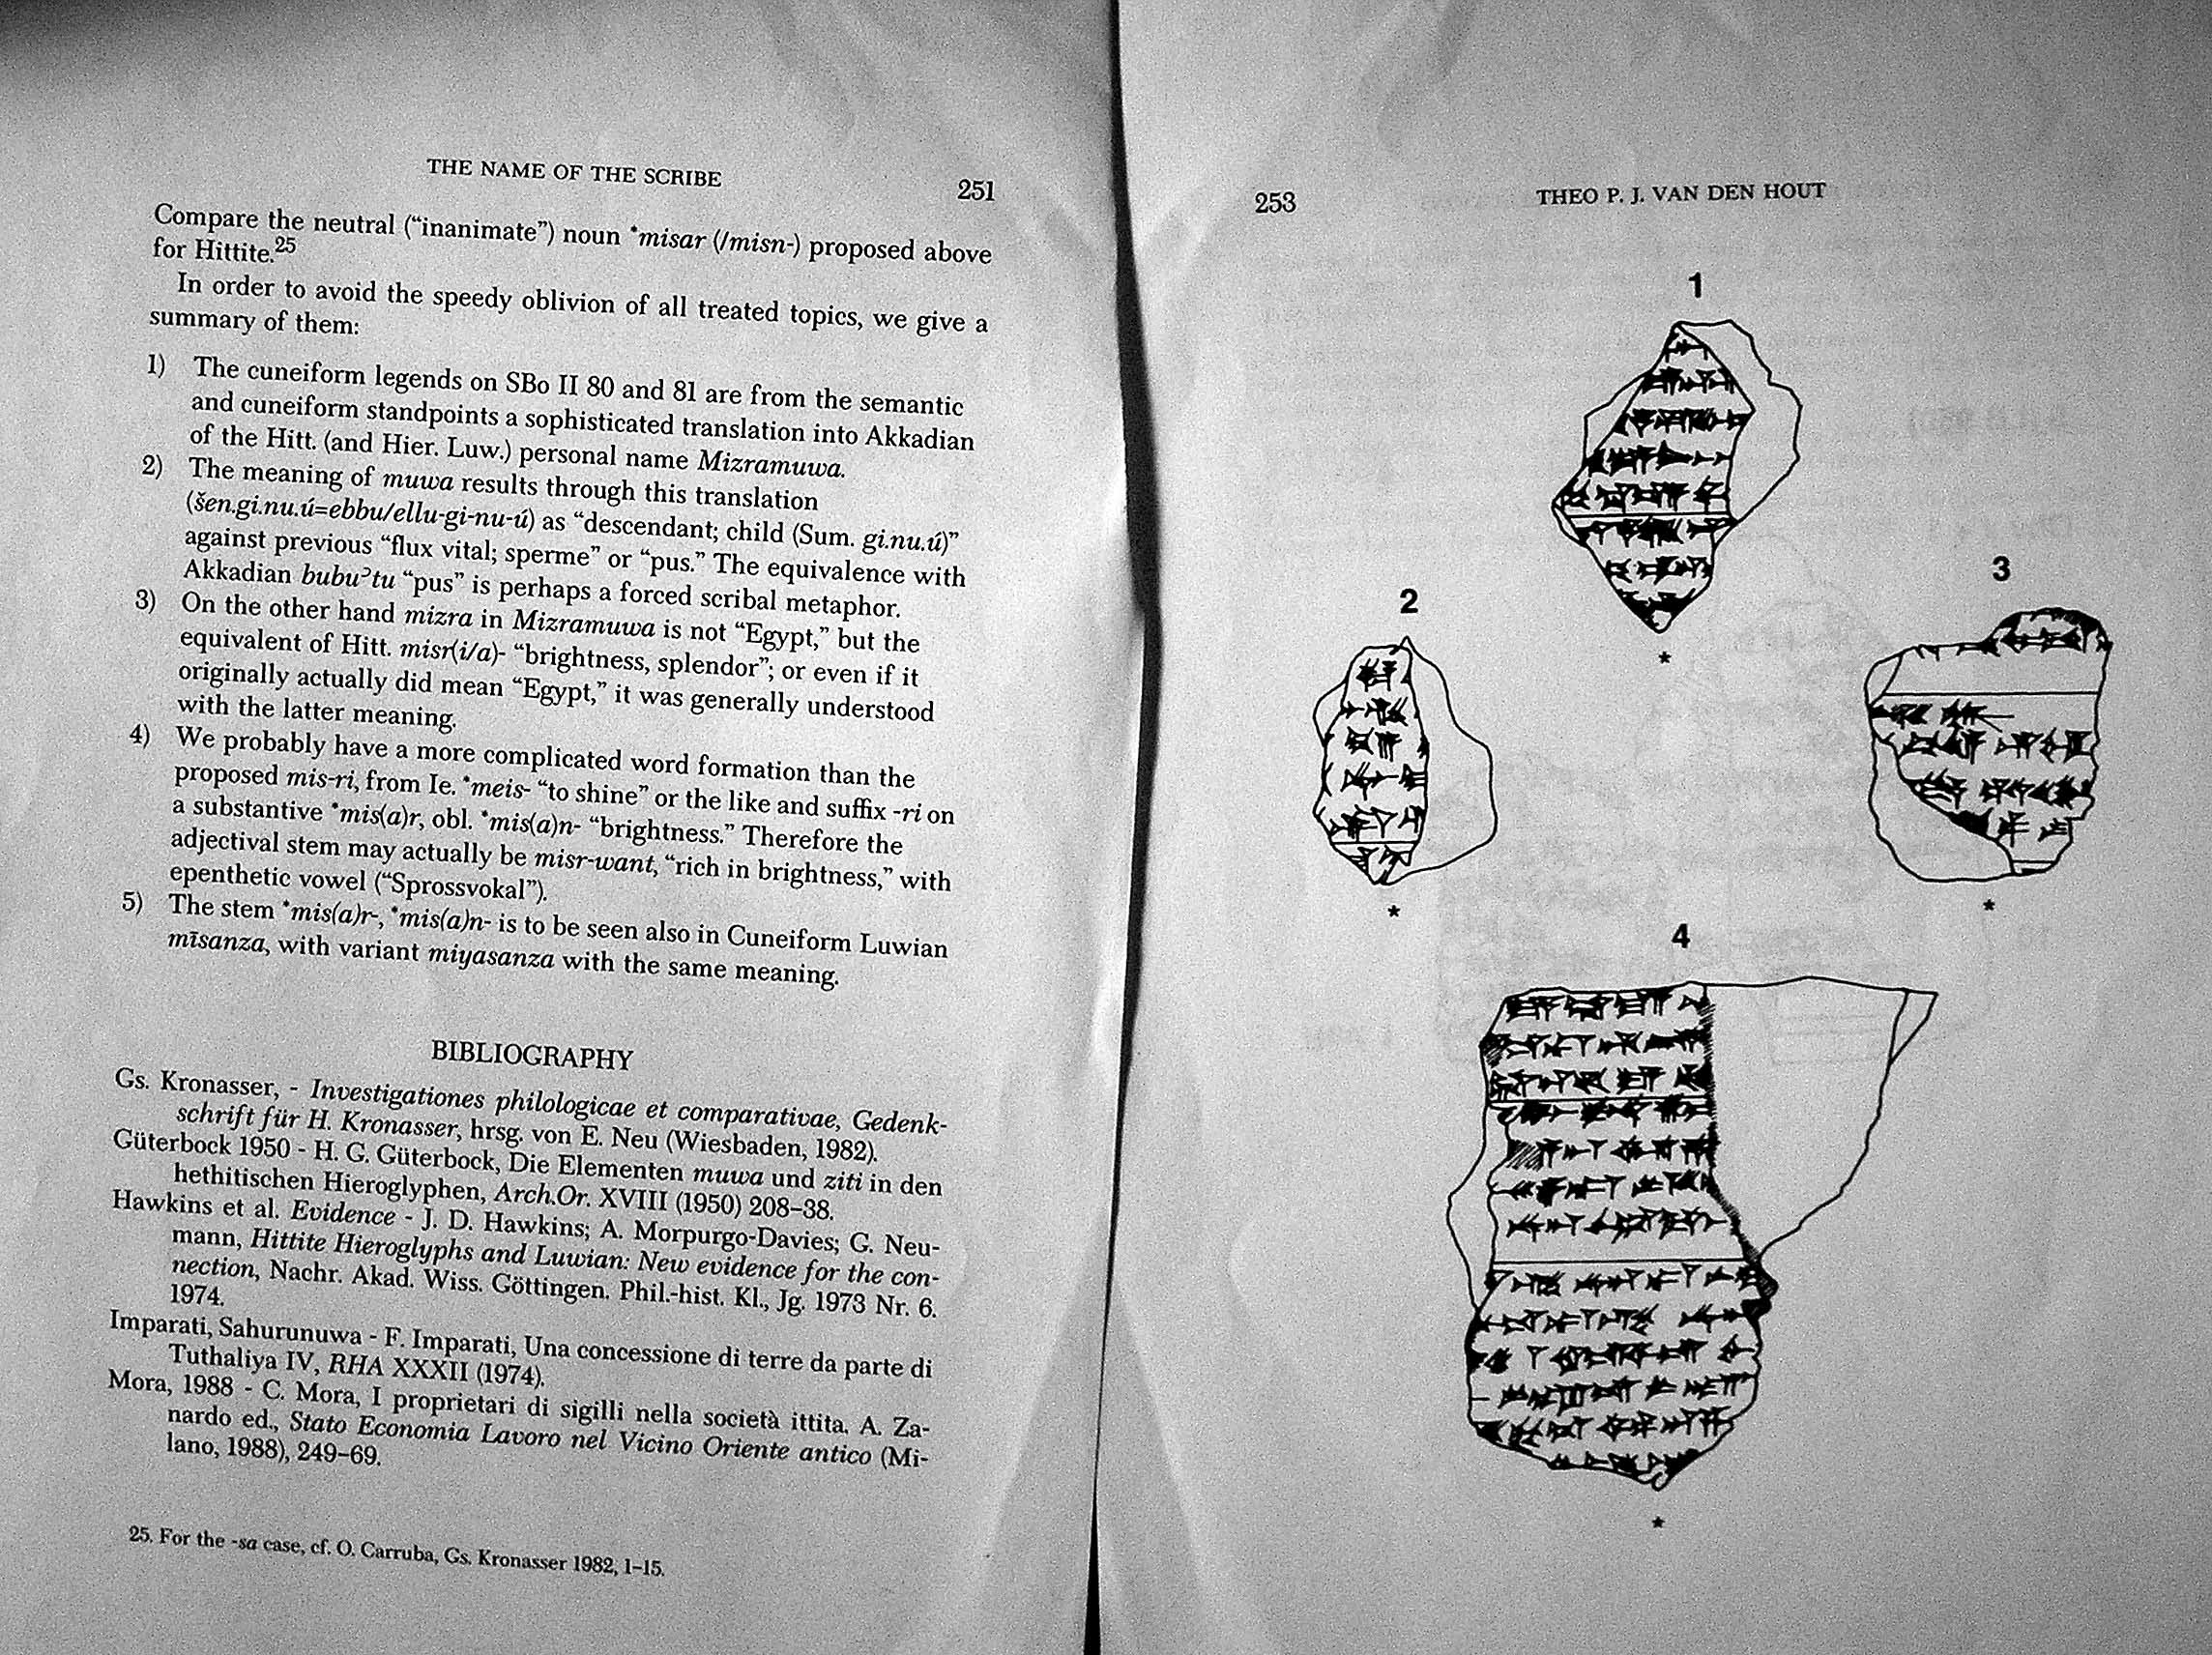 THE NAME OF THE SCRIBE
251
Compare the neutral (“inanimate”) noun *misar (/misn-) proposed above
for Hittite.25
In order to avoid the speedy oblivion of all treated topics, we give a
summary of them:
1) The cuneiform legends on SBo II 80 and 81 are from the semantic
and cuneiform standpoints a sophisticated translation into Akkadian
of the Hitt. (and Hier. Luw.) personal name Mizramuwa.
2) The meaning of muwa results through this translation
(šen.gi.nu.ú=ebbu/ellu-gi-nu-ú) as “descendant; child (Sum. gi.nu.ú)”
against previous “flux vital; sperme” or “pus.” The equivalence with
Akkadian bubuʾtu “pus” is perhaps a forced scribal metaphor.
3) On the other hand mizra in Mizramuwa is not “Egypt,” but the
equivalent of Hitt. misr(i/a)- “brightness, splendor”; or even if it
originally actually did mean “Egypt,” it was generally understood
with the latter meaning.
4) We probably have a more complicated word formation than the
proposed mis-ri, from Ie. *meis- “to shine” or the like and suffix -ri on
a substantive *mis(a)r, obl. *mis(a)n- “brightness.” Therefore the
adjectival stem may actually be misr-want, “rich in brightness,” with
epenthetic vowel (“Sprossvokal”).
5) The stem *mis(a)r-, *mis(a)n- is to be seen also in Cuneiform Luwian
mīsanza, with variant miyasanza with the same meaning.
BIBLIOGRAPHY
Gs. Kronasser, - Investigationes philologicae et comparativae, Gedenk-
schrift für H. Kronasser, hrsg. von E. Neu (Wiesbaden, 1982).
Güterbock 1950 - H. G. Güterbock, Die Elementen muwa und ziti in den
hethitischen Hieroglyphen, Arch.Or. XVIII (1950) 208–38.
Hawkins et al. Evidence - J. D. Hawkins; A. Morpurgo-Davies; G. Neu-
mann, Hittite Hieroglyphs and Luwian: New evidence for the con-
nection, Nachr. Akad. Wiss. Göttingen. Phil.-hist. Kl., Jg. 1973 Nr. 6.
1974.
Imparati, Sahurunuwa - F. Imparati, Una concessione di terre da parte di
Tuthaliya IV, RHA XXXII (1974).
Mora, 1988 - C. Mora, I proprietari di sigilli nella società ittita, A. Za-
nardo ed., Stato Economia Lavoro nel Vicino Oriente antico (Mi-
lano, 1988), 249–69.
25. For the -sa case, cf. O. Carruba, Gs. Kronasser 1982, 1–15.
253
THEO P. J. VAN DEN HOUT
1
*
2
*
3
*
4
*